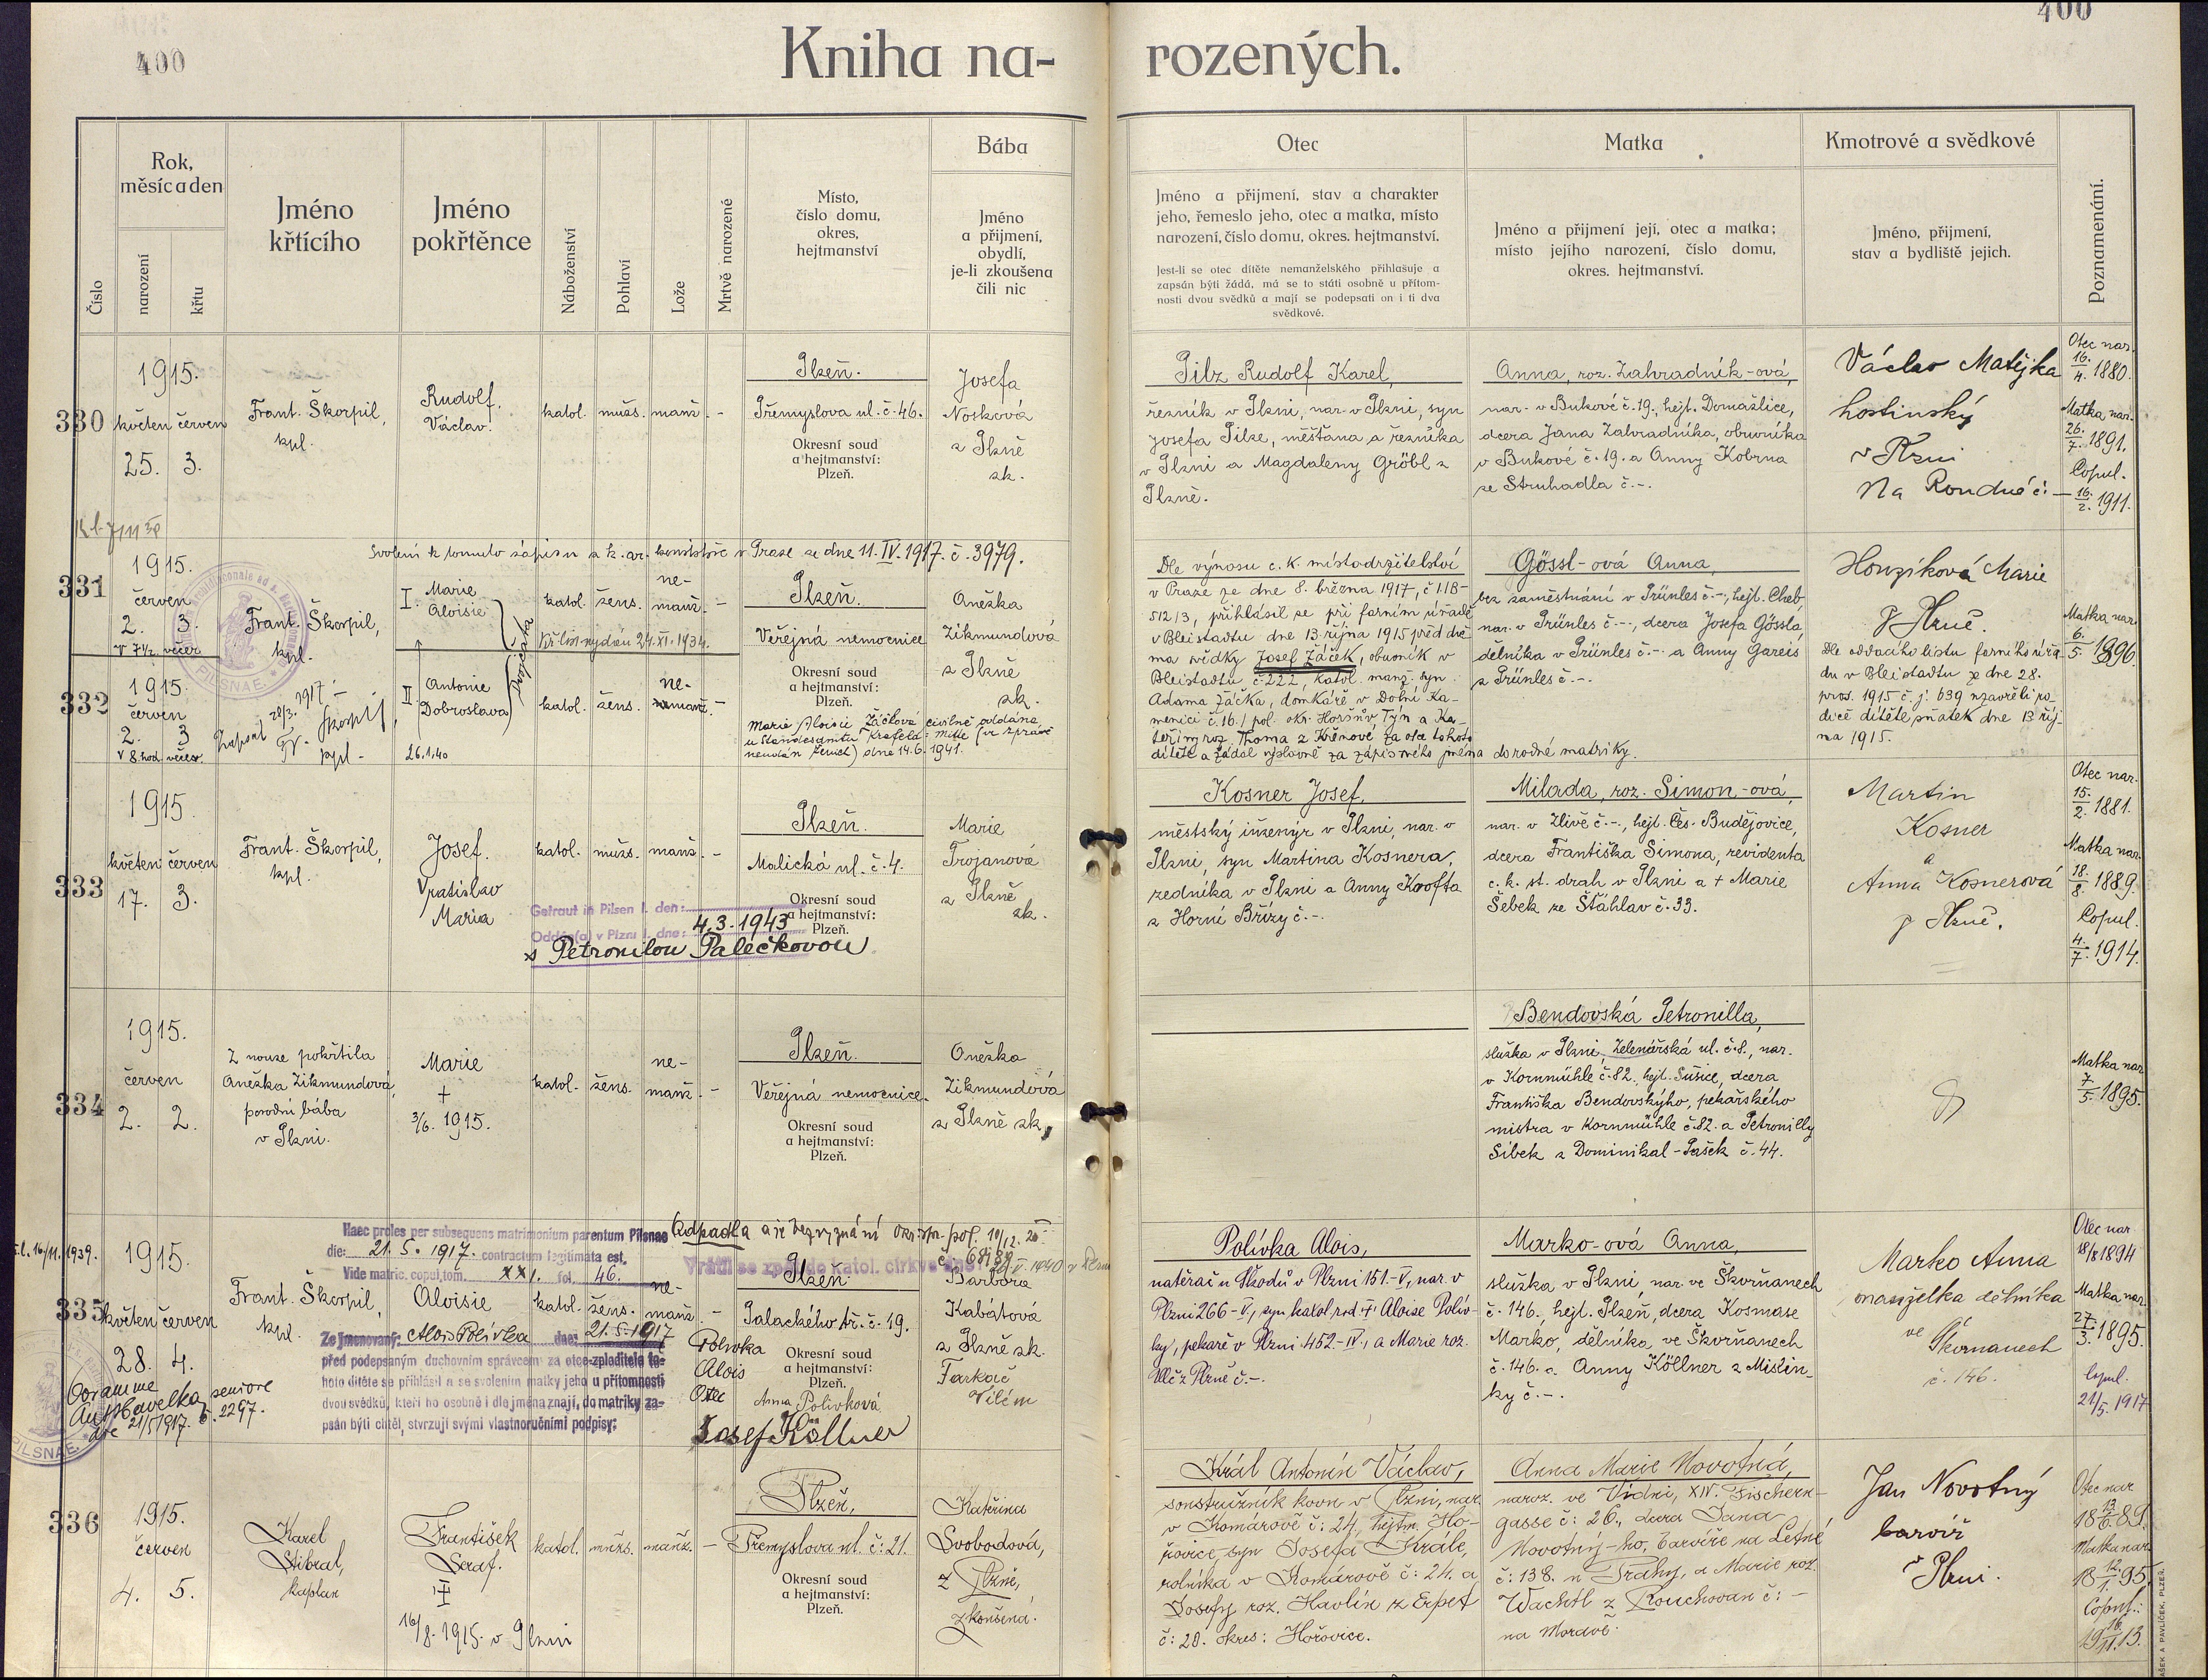 400
400
Kniha na-
rozených.
Číslo
Rok,
měsíc a den
narození
křtu
Jméno
křtícího
Jméno
pokřtěnce
Náboženství
Pohlaví
Lože
Mrtvě narozené
Místo,
číslo domu,
okres,
hejtmanství
Bába
Jméno
a přijmení,
obydlí,
je-li zkoušena
čili nic
Otec
Jméno a přijmení, stav a charakter
jeho, řemeslo jeho, otec a matka, místo
narození, číslo domu, okres. hejtmanství.
Jest-li se otec dítěte nemanželského přihlašuje a
zapsán býti žádá, má se to státi osobně u přítom-
nosti dvou svědků a mají se podepsati on i ti dva
svědkové.
Matka
Jméno a přijmení její, otec a matka;
místo jejího narození, číslo domu,
okres. hejtmanství.
Kmotrové a svědkové
Jméno, přijmení,
stav a bydliště jejich.
Poznamenání.
330
1915.
květen červen
25. 3.
Frant. Škorpil,
kpl.
Rudolf.
Václav.
katol. mužs. manž. -
Plzeň.
Přemyslova ul. č. 46.
Okresní soud
a hejtmanství:
Plzeň.
Josefa
Nosková
z Plzně
zk.
Pilz Rudolf Karel,
řezník v Plzni, nar. v Plzni, syn
Josefa Pilze, měšťana a řezníka
v Plzni a Magdaleny Gröbl z
Plzně.
Anna, roz. Zahradník-ová,
nar. v Bukové č. 19., hejt. Domažlice,
dcera Jana Zahradníka, obuvníka
v Bukové č. 19. a Anny Kobrna
ze Struhadla č. -.
Václav Matějka
hostinský
v Plzni
Na Rondné č. -
Otec nar.
16./4. 1880.
Matka nar.
26./7. 1891.
Copul.
16./2. 1911.
Svolení k tomuto zápisu z k. ar. konsistoře v Praze ze dne 11. IV. 1917. č. 3979.
331
1915.
červen
2. 3.
v 7½ večer
Frant. Škorpil,
kpl.
I. Marie
Aloisie
katol. žens. ne-
manž. -
Křt. list vydán 24. XI. 1934.
Plzeň.
Veřejná nemocnice
Okresní soud
a hejtmanství:
Plzeň.
Anežka
Zikmundová
z Plzně
zk.
332
1915.
červen
2. 3
v 8. hod. večer.
Zapsal 28/3. 1917
Fr. Škorpil,
kpl.
II. Antonie
Dobroslava
26.1.40
katol. žens. ne-
manž. -
Marie Aloisie Žáčková civilně oddána
u Standesamtu Krefeld - Mitte (ve zprávě
neudán ženich) dne 14.6.1941.
Dle výnosu c. k. místodržitelství
v Praze ze dne 8. března 1917, č. 11B-
512/3, přihlásil se při farním úřadě
v Bleistadtu dne 13. října 1915 před dvě-
ma svědky Josef Žáček, obuvník v
Bleistadtu č. 222, katol. manž. syn
Adama Žáčka, domkáře v Dolní Ka-
menici č. 16., pol. okr. Horšův Týn a Ka-
teřiny roz. Thoma z Křenové za otce tohoto
dítěte a žádal výslovně za zápis svého jména do rodné matriky.
Gössl-ová Anna,
bez zaměstnání v Prünles č. -, hejt. Cheb,
nar. v Prünles č. -, dcera Josefa Gössla,
dělníka v Prünles č. - a Anny Gareis
z Prünles č. -.
Honzíková Marie
z Plzně.
Dle oddacího listu farního úřa-
du v Bleistadtu ze dne 28.
pros. 1915 č. j. 639 uzavřeli ro-
diče dítěte sňatek dne 13. říj-
na 1915.
Matka nar.
6./5. 1896.
333
1915
květen červen
17. 3.
Frant. Škorpil,
kpl.
Josef.
Vratislav
Maria
katol. mužs. manž. -
Getraut in Pilsen I. den:
Oddán(a) v Plzni I. dne: 4.3.1943
s Petronilou Palečkovou
Plzeň.
Malická ul. č. 4.
Okresní soud
a hejtmanství:
Plzeň.
Marie
Trojanová
z Plzně
zk.
Kosner Josef,
městský inženýr v Plzni, nar. v
Plzni, syn Martina Kosnera,
zedníka v Plzni a Anny Krofta
z Horní Břízy č. -.
Milada, roz. Simon-ová,
nar. v Zlivě č. -, hejt. Čes. Budějovice,
dcera Františka Simona, revidenta
c. k. st. drah v Plzni a + Marie
Šebek ze Šťáhlav č. 33.
Martin
Kosner
a
Anna Kosnerová
z Plzně.
Otec nar.
15./2. 1881.
Matka nar.
18./8. 1889.
Copul.
4./7. 1914.
334
1915.
červen
2. 2.
Z nouze pokřtila
Anežka Zikmundová,
porodní bába
v Plzni.
Marie
+
3/6. 1915.
katol. žens. ne-
manž. -
Plzeň.
Veřejná nemocnice.
Okresní soud
a hejtmanství:
Plzeň.
Anežka
Zikmundová
z Plzně zk.
Bendovská Petronilla,
služka v Plzni, Zelenářská ul. č. 8., nar.
v Kornmühle č. 82., hejt. Sušice, dcera
Františka Bendovskýho, pekařského
mistra v Kornmühle č. 82. a Petronilly
Sibek z Dominikal-Pašek č. 44.
Matka nar.
7./5. 1895.
16/11. 1939.
Haec proles per subsequens matrimonium parentum Pilsnae
die: 21. 5. 1917. contractum legitimata est.
Vide matric. copul. tom. XXI. fol. 46.
Odpadla a je bez vyznání
Vrátil se zpět do katol. církve dne
335
1915.
květen červen
28. 4.
Frant. Škorpil,
kpl.
Aloisie
katol. žens. ne-
manž. -
Ze jmenovaný: Alois Polívka dne: 21.5.1917
před podepsaným duchovním správcem za otce-zploditele to-
hoto dítěte se přihlásil a se svolením matky jeho u přítomnosti
dvou svědků, kteří ho osobně i dle jména znají, do matriky za-
psán býti chtěl, stvrzují svými vlastnoručními podpisy:
Coram me
seniore
21/5 1917. č. 2297.
Plzeň.
Palackého tř. č. 19.
Okresní soud
a hejtmanství:
Plzeň.
Polívka
Alois
Otec
Anna Polívková
Josef Köllner
Barbora
Kabátová
z Plzně zk.
Farkač
Vilém
Polívka Alois,
natěrač u Škodů v Plzni 151.-V, nar. v
Plzni 266-V, syn katol. rod. + Aloise Polív-
ky, pekaře v Plzni 452-IV., a Marie roz.
Vlč z Plzně č. -.
Marko-ová Anna,
služka, v Plzni, nar. ve Škvrňanech
č. 146., hejt. Plzeň, dcera Kosmase
Marko, dělníka, ve Škvrňanech
č. 146. a Anny Köllner z Mistin-
ky č. -.
Marko Anna
manželka dělníka
ve Škvrňanech
č. 146.
Otec nar
18/8 1894
Matka nar.
27./3. 1895.
Copul.
21/5. 1917
336
1915.
červen
4. 5.
Karel
Stibral,
kaplan
František
Seraf.
16/8. 1915. v Plzni
katol. mužs. manž. -
Plzeň,
Přemyslova ul. č: 21.
Okresní soud
a hejtmanství:
Plzeň.
Kateřina
Svobodová,
z Plzně,
zkoušená.
Král Antonín Václav,
soustružník kovu v Plzni, nar.
v Komárově č: 24, hejtm. Ho-
řovice, syn Josefa Krále,
rolníka v Komárově č: 24. a
Josefy roz. Havlín z Erpet
č: 20. okres: Hořovice.
Anna Marie Novotná,
naroz. ve Vídni, XIV. Fischern-
gasse č: 26., dcera Jana
Novotný-ho, barvíře na Letné
č: 138. u Prahy, a Marie roz.
Wachtl z Rouchovan č: -
na Moravě.
Jan Novotný
barvíř
v Plzni.
Otec nar
18 13/6. 89.
Matka nar.
18 12./1. 95.
Copul.:
19 16/11. 13.